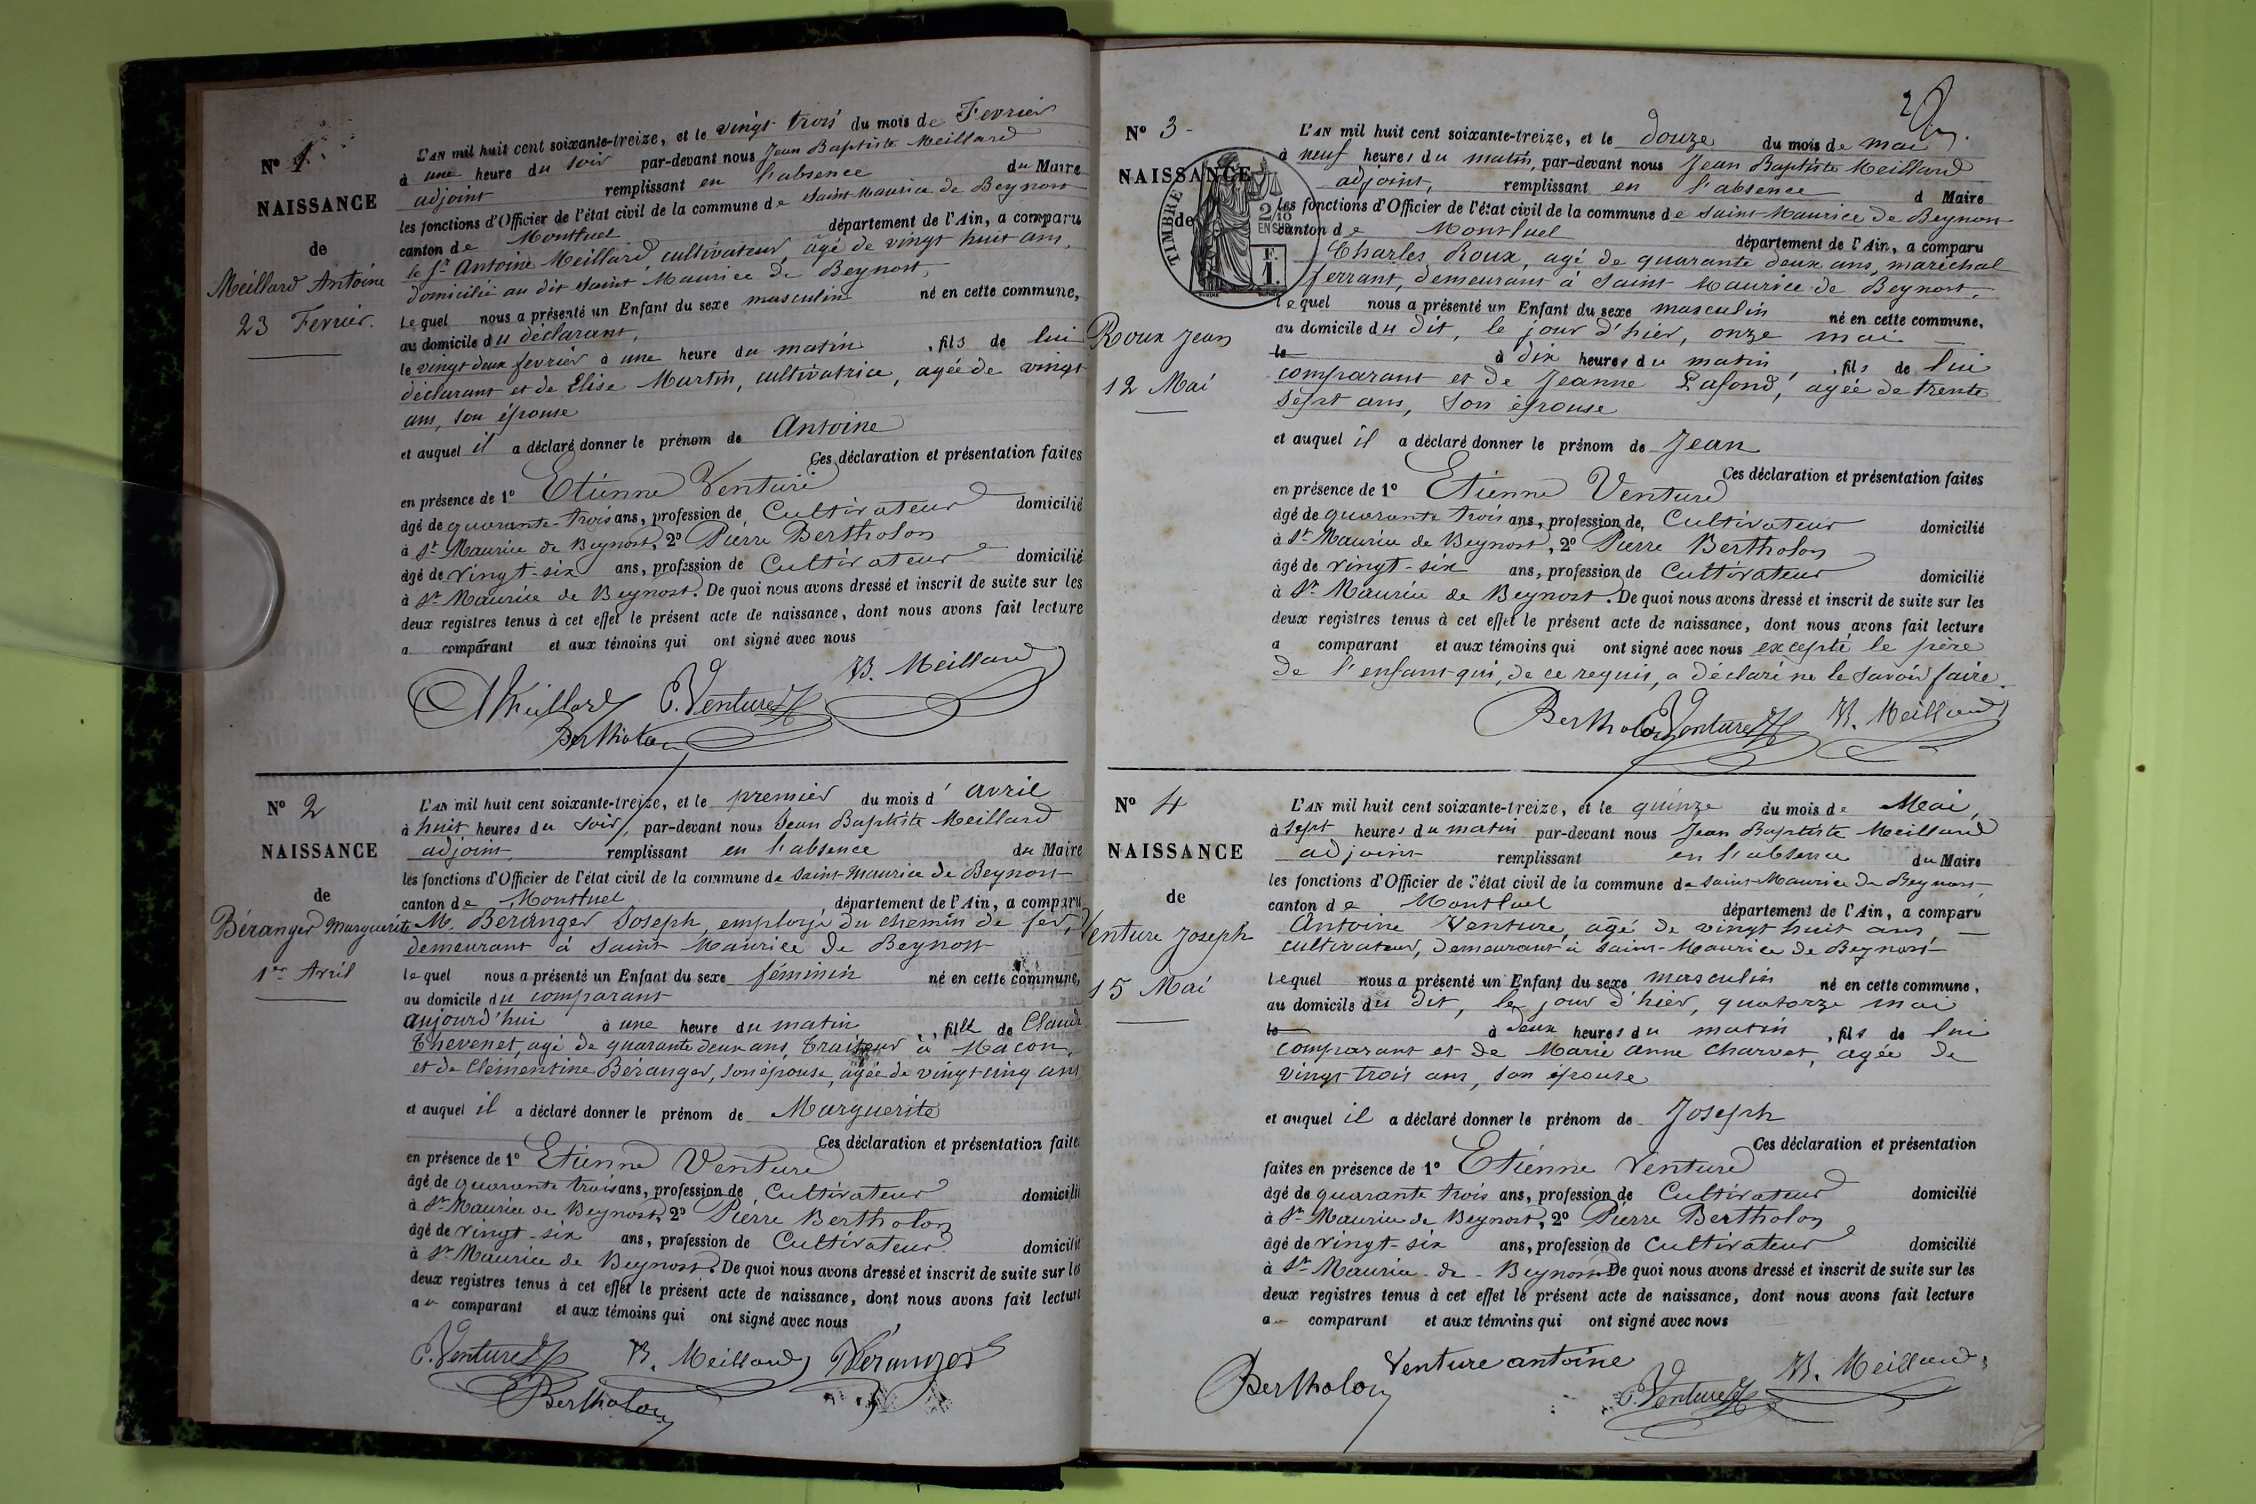 Nº 1.
NAISSANCE
de
Meillard Antoine
23 Fevrier.
L'AN mil huit cent soixante-treize, et le vingt trois du mois de Fevrier
à une heure du soir par-devant nous Jean Baptiste Meillard
adjoint remplissant en l'absence du Maire
les fonctions d'Officier de l'état civil de la commune de Saint Maurice de Beynost
canton de Montluel département de l'Ain, a comparu
le Sr Antoine Meillard cultivateur, âgé de vingt huit ans,
domicilié au dit Saint Maurice de Beynost,
Lequel nous a présenté un Enfant du sexe masculin né en cette commune,
au domicile du déclarant,
le vingt deux fevrier à une heure du matin, fils de lui
déclarant et de Elise Martin, cultivatrice, agée de vingt
ans, son épouse
et auquel il a déclaré donner le prénom de Antoine
Ces déclaration et présentation faites
en présence de 1º Etienne Venture
âgé de quarante-trois ans, profession de Cultivateur domicilié
à St Maurice de Beynost, 2º Pierre Bertholon
âgé de vingt-six ans, profession de Cultivateur domicilié
à St Maurice de Beynost. De quoi nous avons dressé et inscrit de suite sur les
deux registres tenus à cet effet le présent acte de naissance, dont nous avons fait lecture
a comparant et aux témoins qui ont signé avec nous
A Meillard E. Venture B. Meillard
Bertholon
Nº 2
NAISSANCE
de
Béranger Marguerite
1er Avril
L'AN mil huit cent soixante-treize, et le premier du mois d'avril
à huit heures du soir, par-devant nous Jean Baptiste Meillard
adjoint remplissant en l'absence du Maire
les fonctions d'Officier de l'état civil de la commune de Saint-Maurice de Beynost
canton de Montluel département de l'Ain, a comparu
Mr Béranger Joseph, employé du chemin de fer,
demeurant à Saint Maurice de Beynost
lequel nous a présenté un Enfant du sexe féminin né en cette commune,
au domicile du comparant
aujourd'hui à une heure du matin, fille de Claude
Thevenet, agé de quarante deux ans, traiteur à Macon,
et de Clémentine Béranger, son épouse, agée de vingt cinq ans
et auquel il a déclaré donner le prénom de Marguerite
Ces déclaration et présentation faites
en présence de 1º Etienne Venture
âgé de quarante trois ans, profession de Cultivateur domicilié
à St Maurice de Beynost, 2º Pierre Bertholon
âgé de vingt-six ans, profession de Cultivateur domicilié
à St Maurice de Beynost. De quoi nous avons dressé et inscrit de suite sur les
deux registres tenus à cet effet le présent acte de naissance, dont nous avons fait lecture
au comparant et aux témoins qui ont signé avec nous
E. Venture B. Meillard Béranger
Bertholon
2
Nº 3
NAISSANCE
de
TIMBRE
2/10
EN SUS
F.
1.
Roux Jean
12 Mai
L'AN mil huit cent soixante-treize, et le douze du mois de mai
à neuf heures du matin, par-devant nous Jean Baptiste Meillard
adjoint, remplissant en l'absence d Maire
les fonctions d'Officier de l'état civil de la commune de Saint-Maurice de Beynost
canton de Montluel département de l'Ain, a comparu
Charles Roux, agé de quarante deux ans, maréchal
ferrant, demeurant à Saint Maurice de Beynost,
lequel nous a présenté un Enfant du sexe masculin né en cette commune,
au domicile du dit, le jour d'hier, onze mai
le à dix heures du matin, fils de lui
comparant et de Jeanne Lafond, agée de trente
sept ans, son épouse
et auquel il a déclaré donner le prénom de Jean
Ces déclaration et présentation faites
en présence de 1º Etienne Venture
âgé de quarante trois ans, profession de Cultivateur domicilié
à St Maurice de Beynost, 2º Pierre Bertholon
âgé de vingt-six ans, profession de Cultivateur domicilié
à St Maurice de Beynost. De quoi nous avons dressé et inscrit de suite sur les
deux registres tenus à cet effet le présent acte de naissance, dont nous avons fait lecture
a comparant et aux témoins qui ont signé avec nous excepté le père
de l'enfant qui, de ce requis, a déclaré ne le savoir faire.
Bertholon E. Venture B. Meillard
Nº 4
NAISSANCE
de
Venture Joseph
15 Mai
L'AN mil huit cent soixante-treize, et le quinze du mois de Mai,
à sept heures du matin par-devant nous Jean Baptiste Meillard
adjoint remplissant en l'absence du Maire
les fonctions d'Officier de l'état civil de la commune de Saint-Maurice de Beynost
canton de Montluel département de l'Ain, a comparu
Antoine Venture, âgé de vingt huit ans,
cultivateur, demeurant à Saint-Maurice de Beynost
Lequel nous a présenté un Enfant du sexe masculin né en cette commune,
au domicile du dit, le jour d'hier, quatorze mai
le à deux heures du matin, fils de lui
comparant et de Marie Anne Charvet, agée de
vingt trois ans, son épouse
et auquel il a déclaré donner le prénom de Joseph
Ces déclaration et présentation
faites en présence de 1º Etienne Venture
âgé de quarante trois ans, profession de Cultivateur domicilié
à St Maurice de Beynost, 2º Pierre Bertholon
âgé de vingt-six ans, profession de Cultivateur domicilié
à St Maurice-de-Beynost De quoi nous avons dressé et inscrit de suite sur les
deux registres tenus à cet effet le présent acte de naissance, dont nous avons fait lecture
au comparant et aux témoins qui ont signé avec nous
Bertholon Venture antoine E. Venture B. Meillard